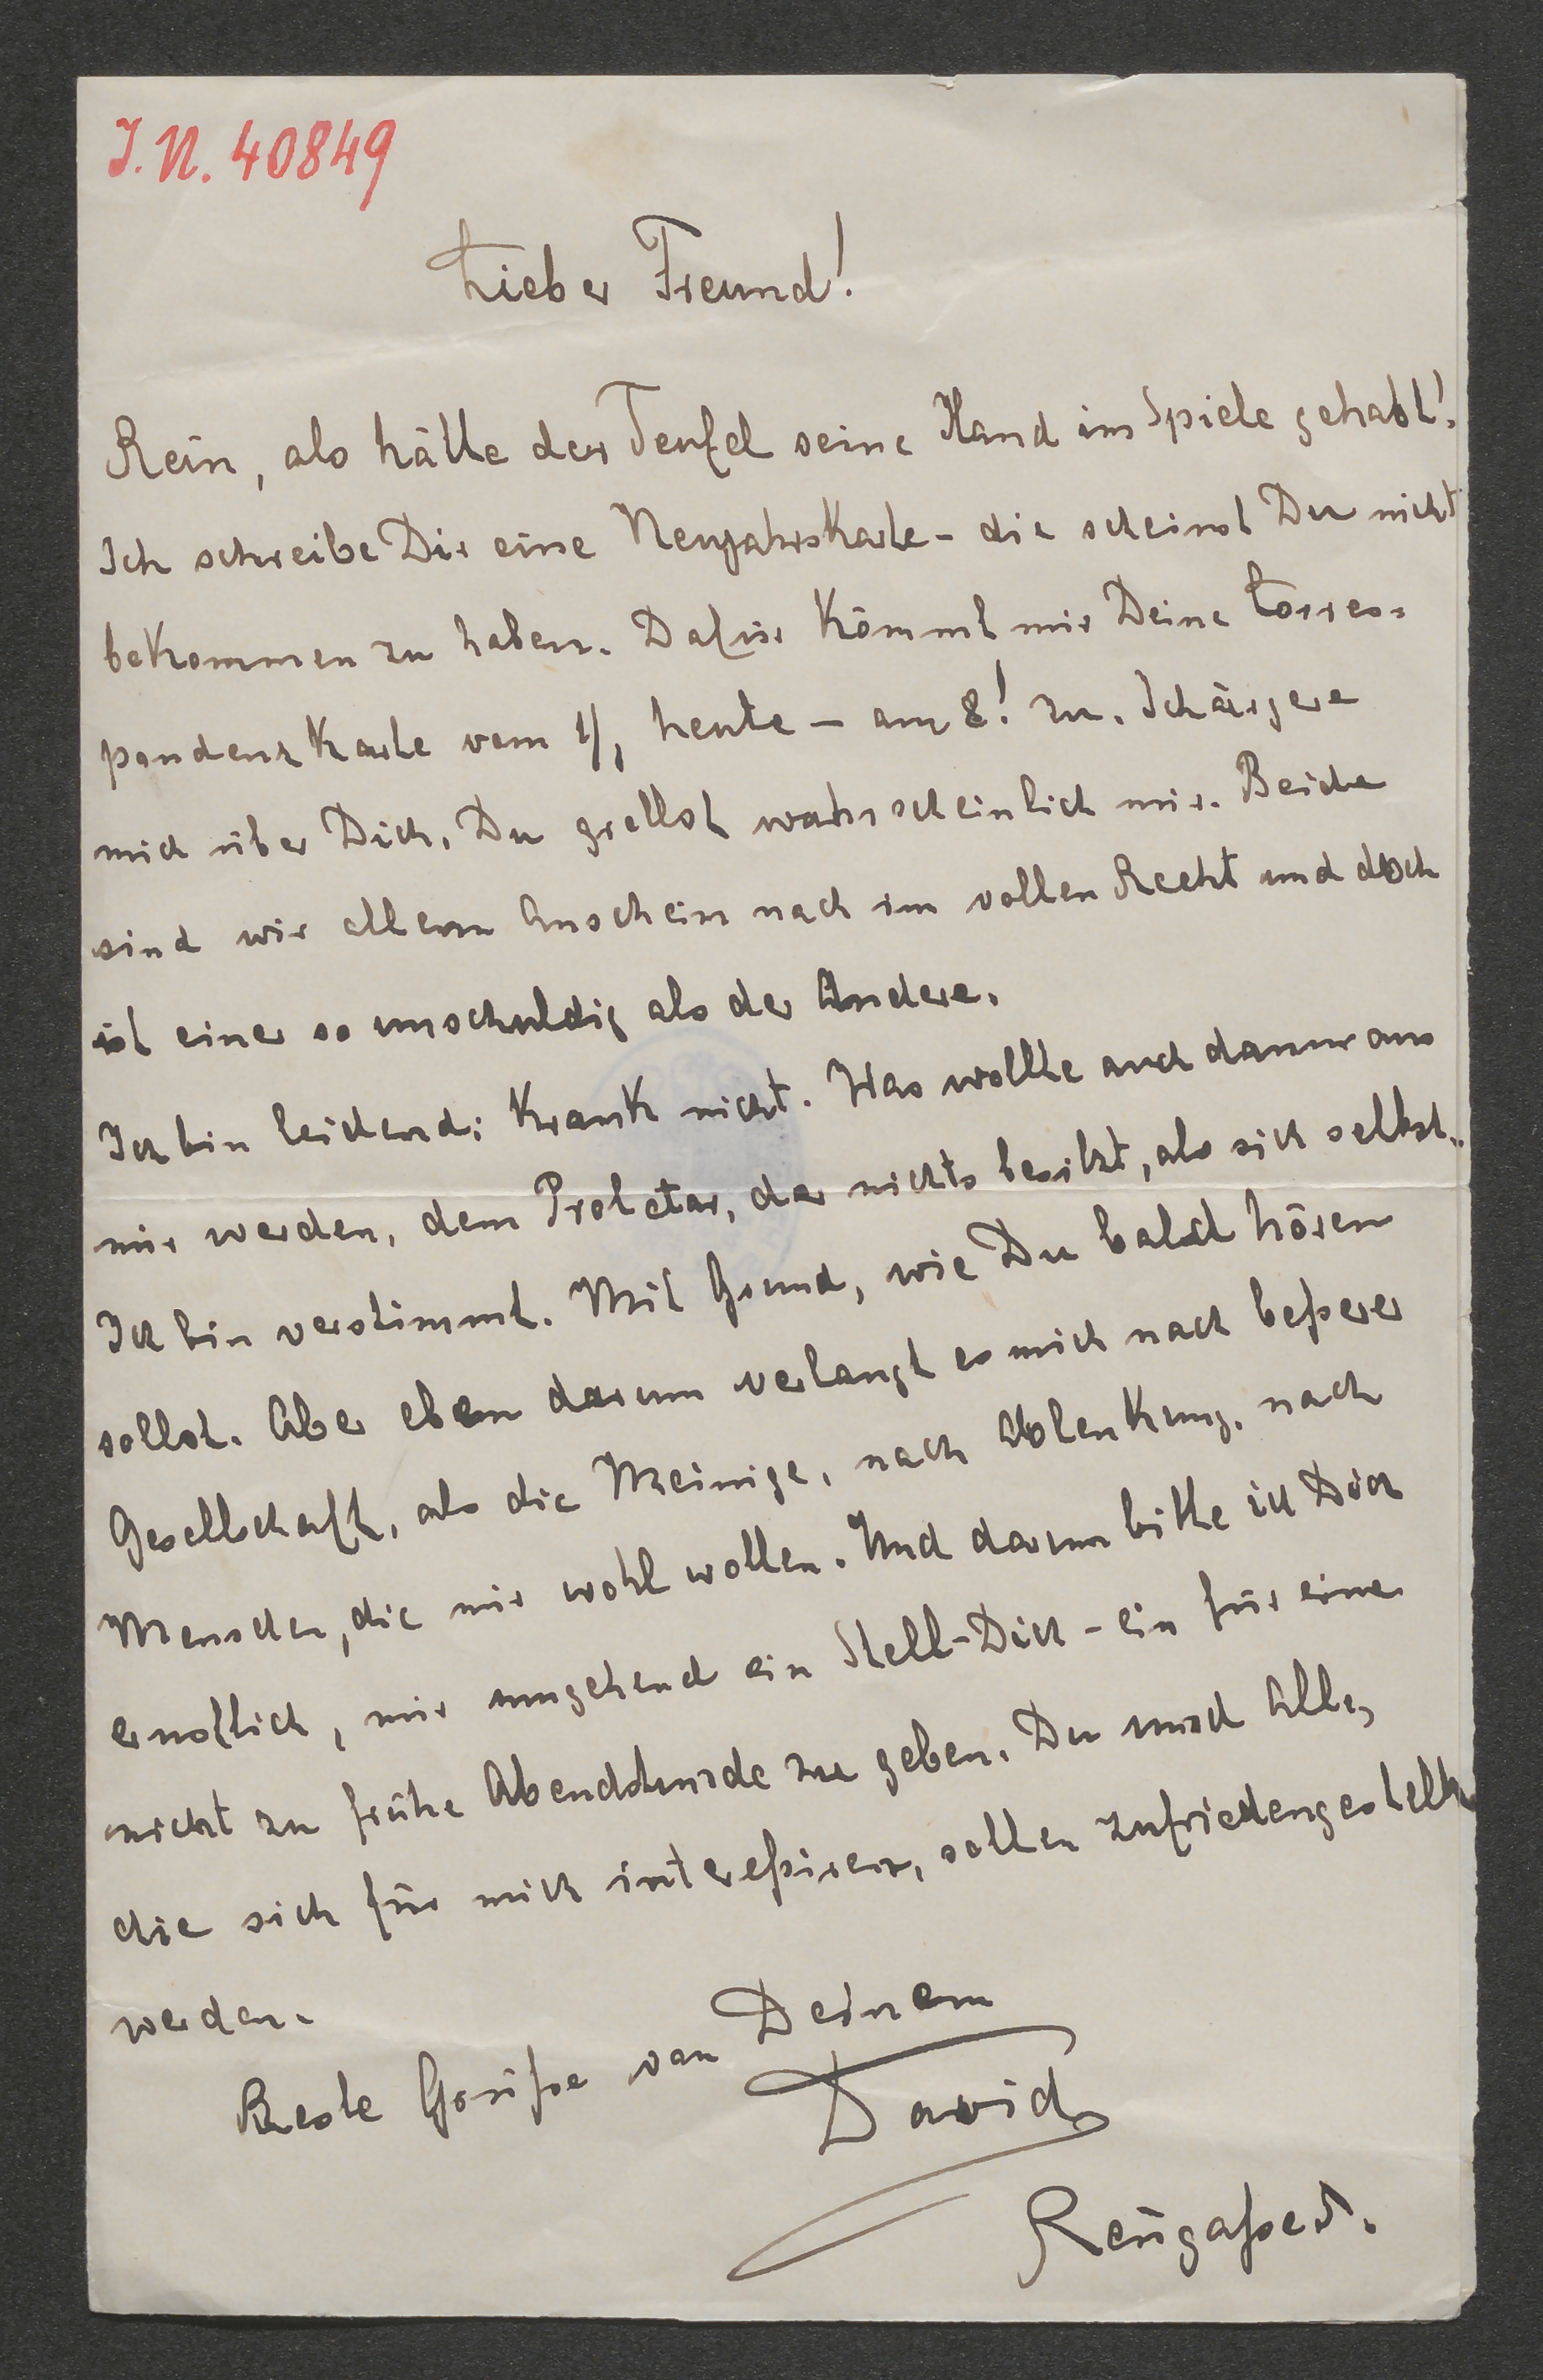 J. N. 40849
Lieber Freund!
Rein, als hätte der Teufel seine Hand im Spiele gehabt!
Ich schreibe Dir eine Neujahrskarte - die scheinst Du nicht
bekommen zu haben. Dafür kömmt mir Deine Corres=
pondenzkarte vom 1/1 heute - am 8! zu. Ich ärgere
mich über Dich, Du grollst wahrscheinlich mir. Beide
sind wir allem Anschein nach im vollen Recht und doch
ist einer so unschuldig als der Andere.
Ich bin leidend; krank nicht. Was wollte auch dann aus
mir werden, dem Proletar, der nichts besitzt, als sich selbst.
Ich bin verstimmt. Mit Grund, wie Du bald hören
sollst. Aber eben darum verlangt es mich nach beßerer
Gesellschaft, als die Meinige, nach Ablenkung, nach
Menschen, die mir wohl wollen. Und darum bitte ich Dich
ernstlich, mir umgehend ein Stell-Dich-ein für eine
nicht zu frühe Abendstunde zu geben. Du und Alle,
die sich für mich intereßiren, sollen zufriedengestellt
werden.
Beste Grüße von Deinem
David
Renngaße 5.